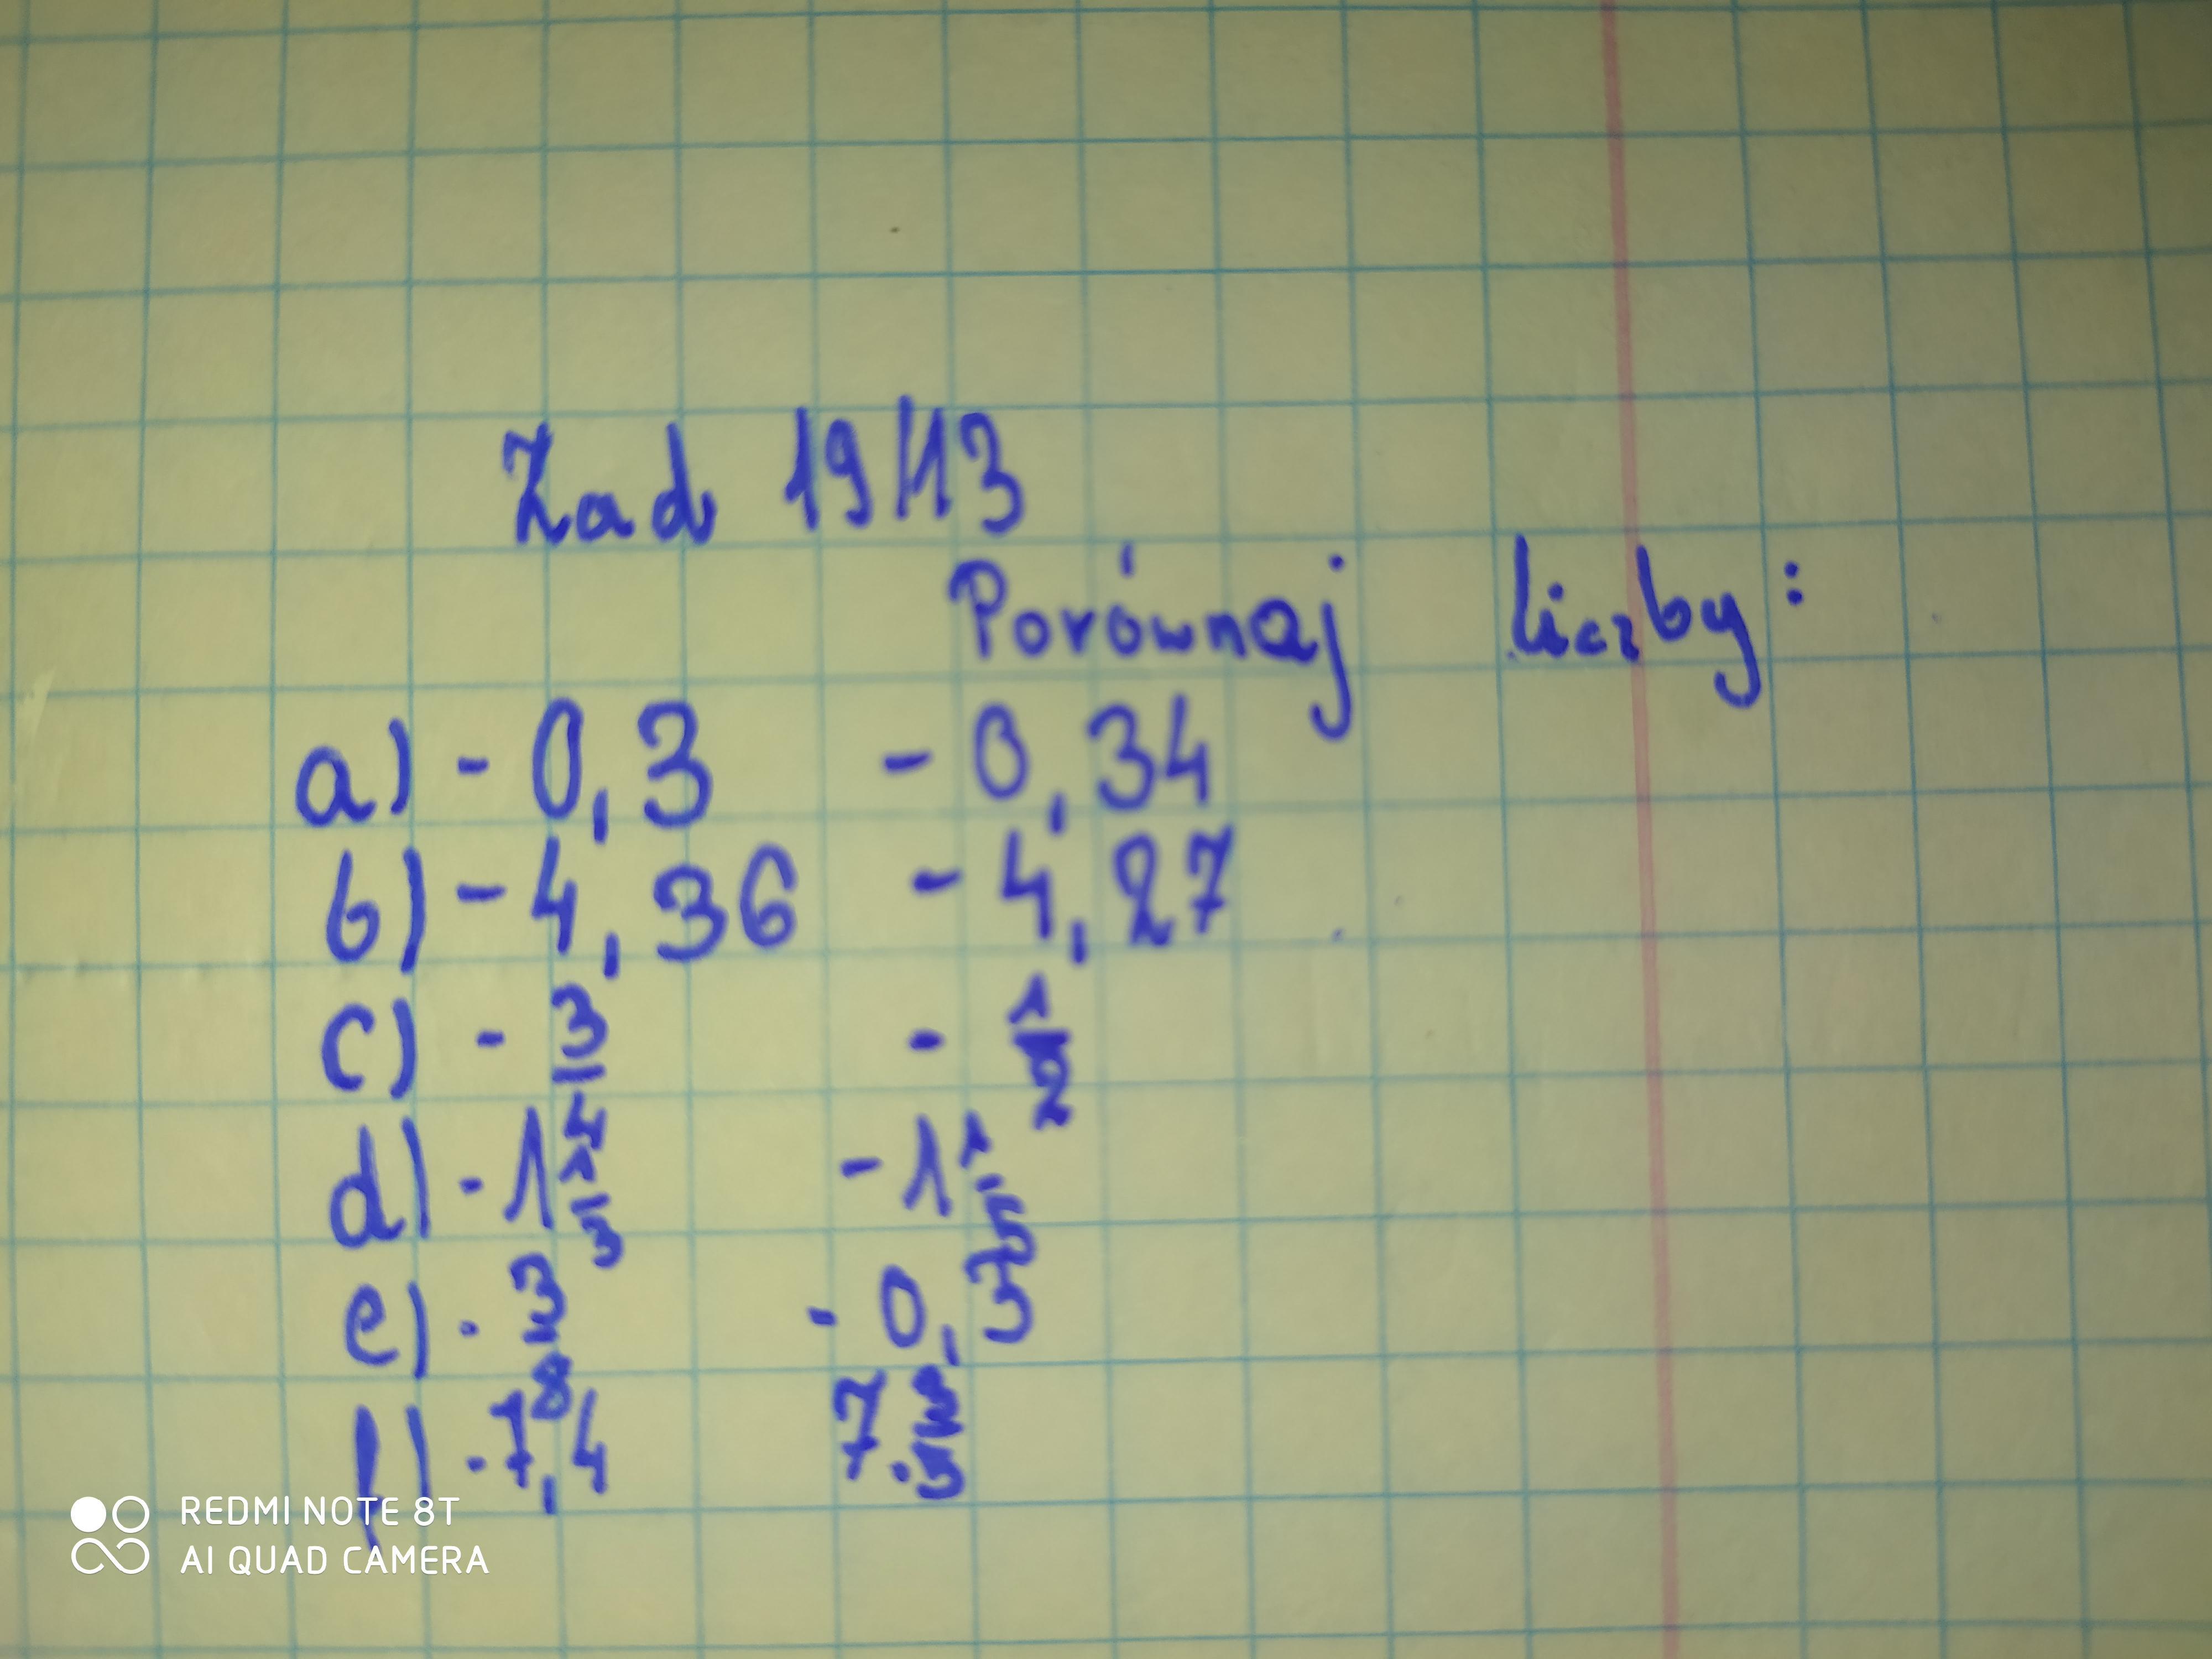 Zad 19/13
Porównaj liczby:
a) - 0,3 - 0,34
b) - 4,36 - 4,27
c) - 3/4 - 1/2
d) - 1 1/3 - 1 1/5
e) - 3/8 - 0,3
f) - 7,4 7
REDMI NOTE 8T
AI QUAD CAMERA